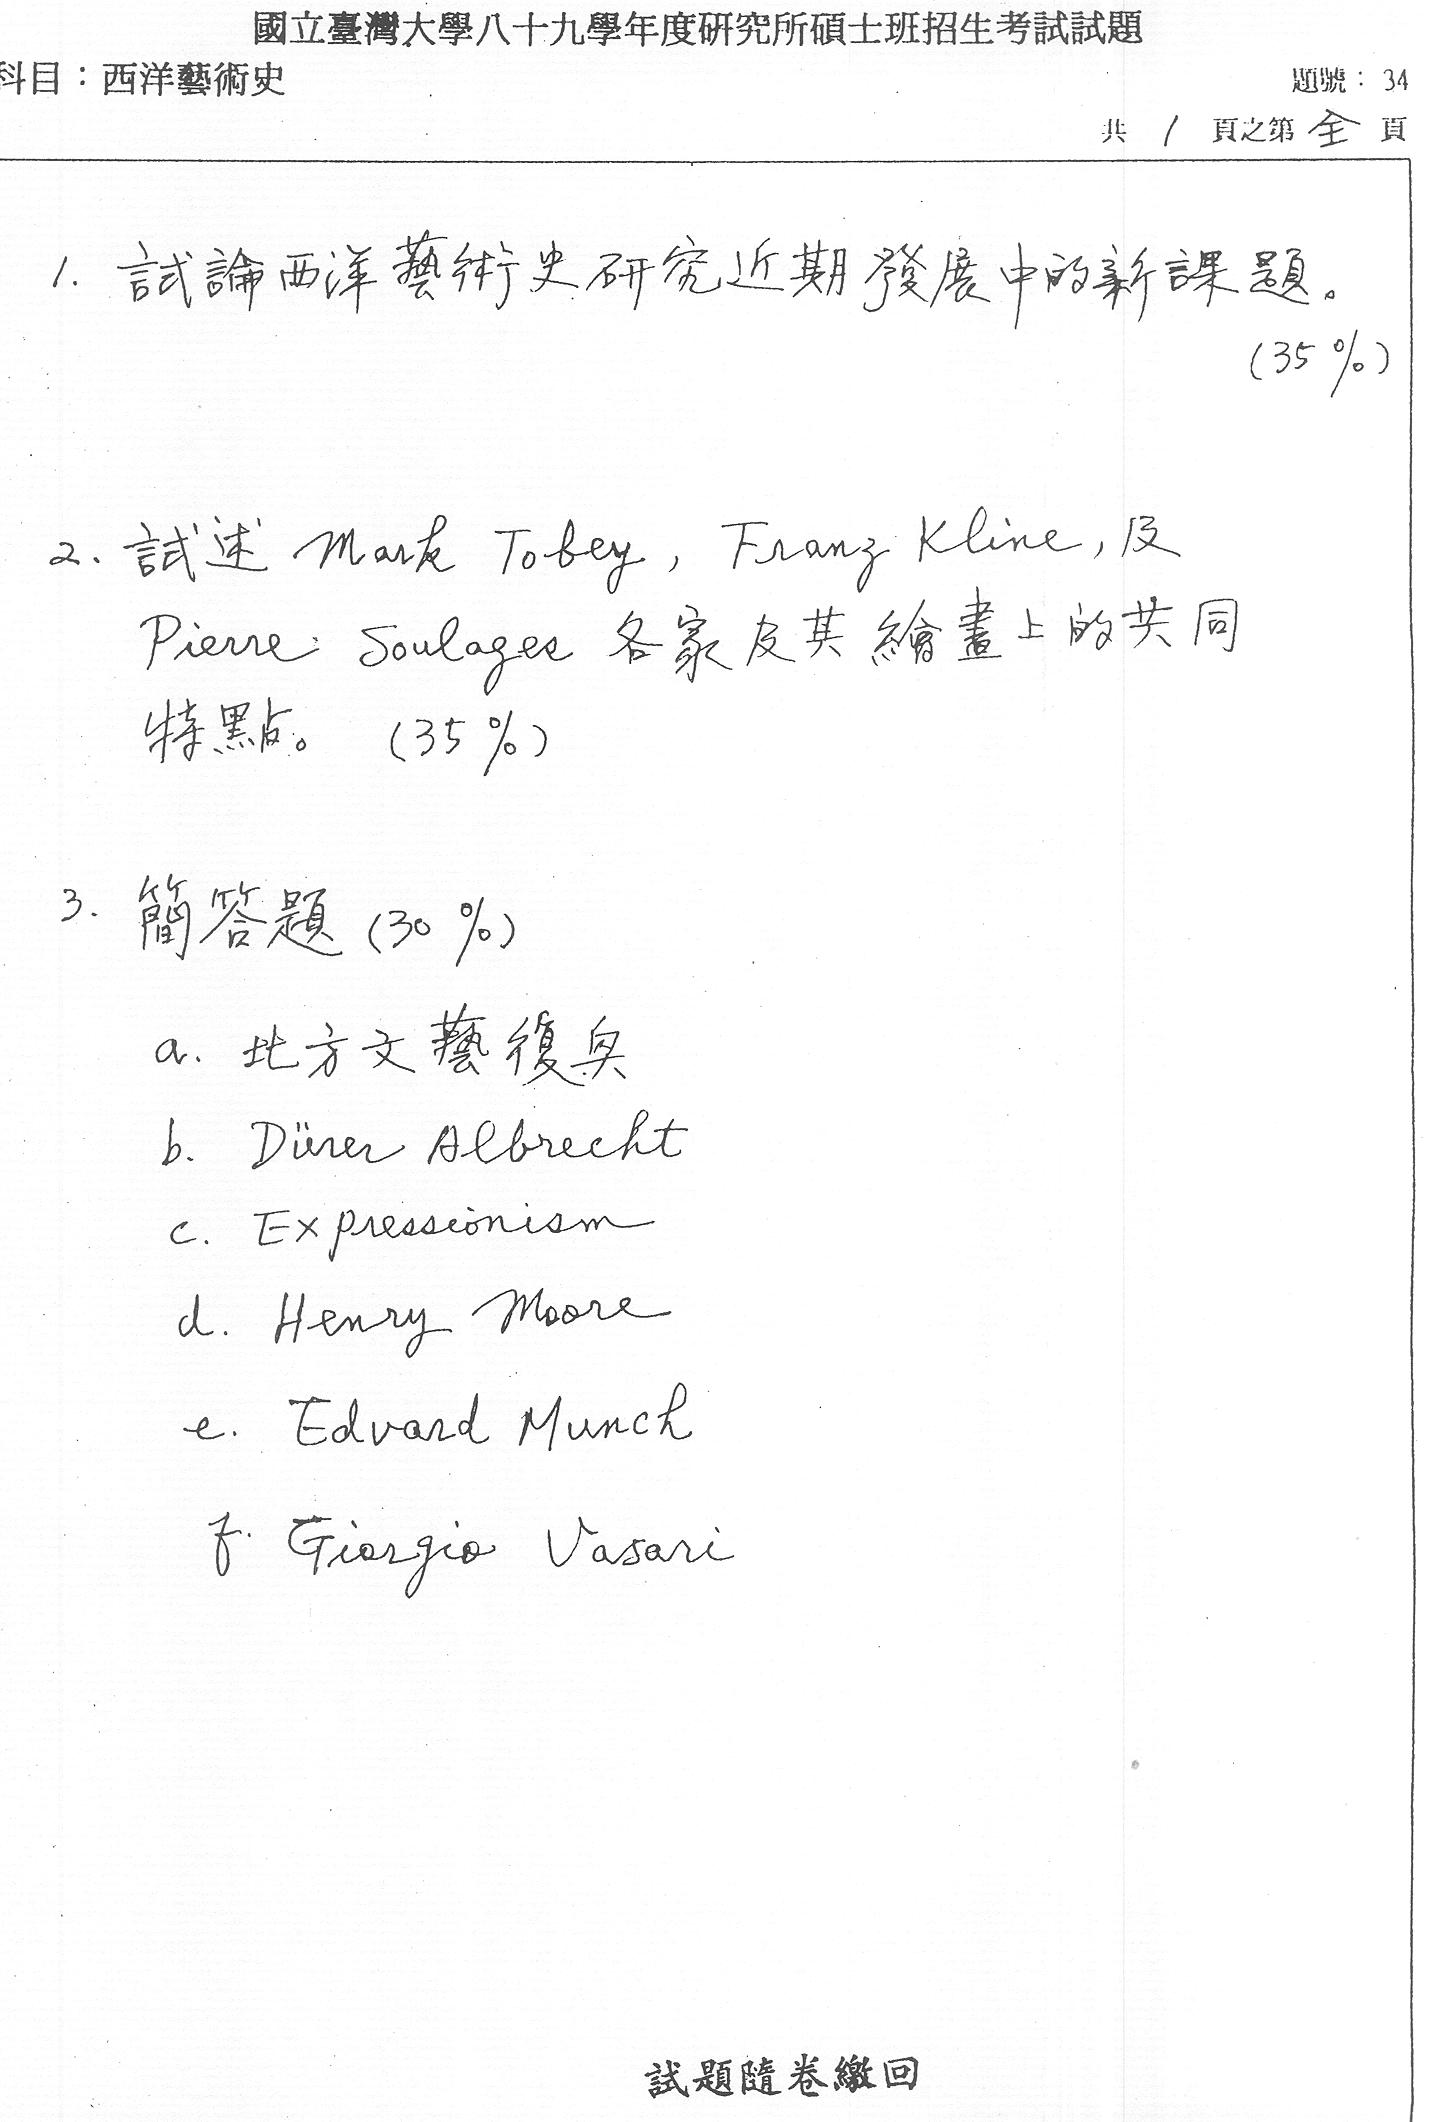 國立臺灣大學八十九學年度研究所碩士班招生考試試題
科目：西洋藝術史
題號：34
共 1 頁之第 全 頁
1. 試論西洋藝術史研究近期發展中的新課題。
(35%)
2. 試述 Mark Tobey, Franz Kline, 及
Pierre Soulages 各家及其繪畫上的共同
特點。 (35%)
3. 簡答題 (30%)
a. 北方文藝復興
b. Dürer Albrecht
c. Expressionism
d. Henry Moore
e. Edvard Munch
f. Giorgio Vasari
試題隨卷繳回